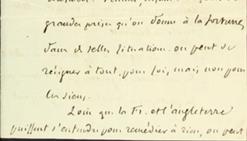 grande prise qu'on donne à la fortune
dans de telles situations on peut se
résigner à tout pour soi, mais non pour
les siens.
Loin que la Fr. et l'angleterre
puissent s'entendre pour remédier à rien, on peut